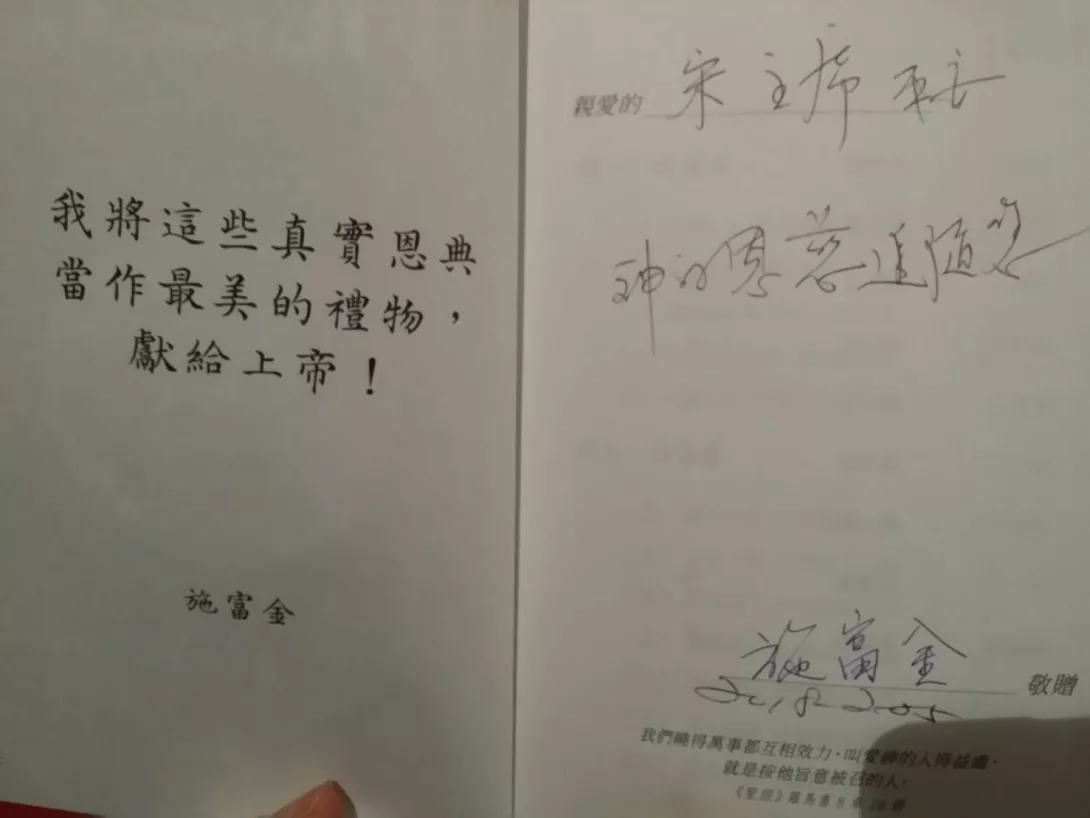 我將這些真實恩典
當作最美的禮物，
獻給上帝！
施富金
親愛的 宋主席
神的恩慈追隨您
施富金 敬贈
我們曉得萬事都互相效力，叫愛神的人得益處，
就是按他旨意被召的人。
《聖經》羅馬書8章28節